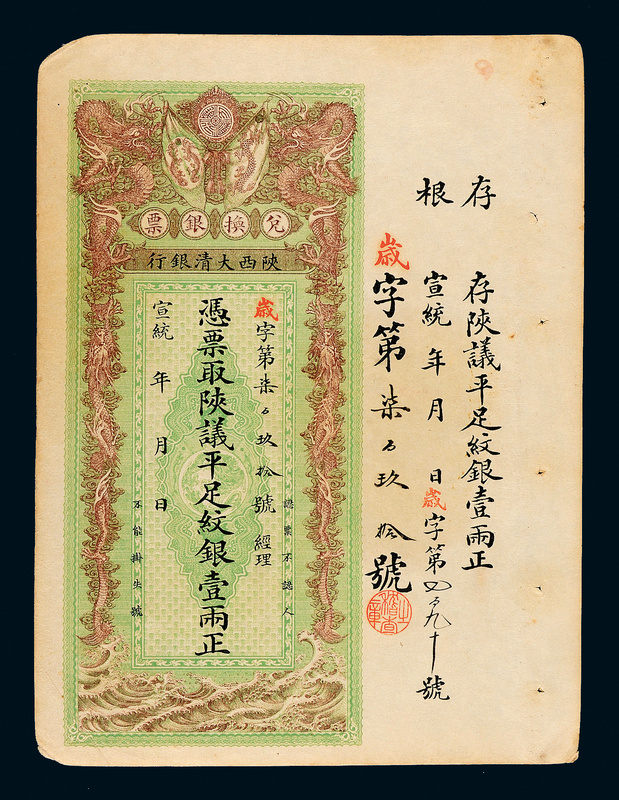 存根
存陝議平足紋銀壹兩正
宣統 年 月 日 歲字第 百九十號
歲字第柒百玖拾號
兌換銀票
陝西大清銀行
認票不認人
歲字第柒百玖拾號 經理
憑票取陝議平足紋銀壹兩正
宣統 年 月 日
不能掛失號